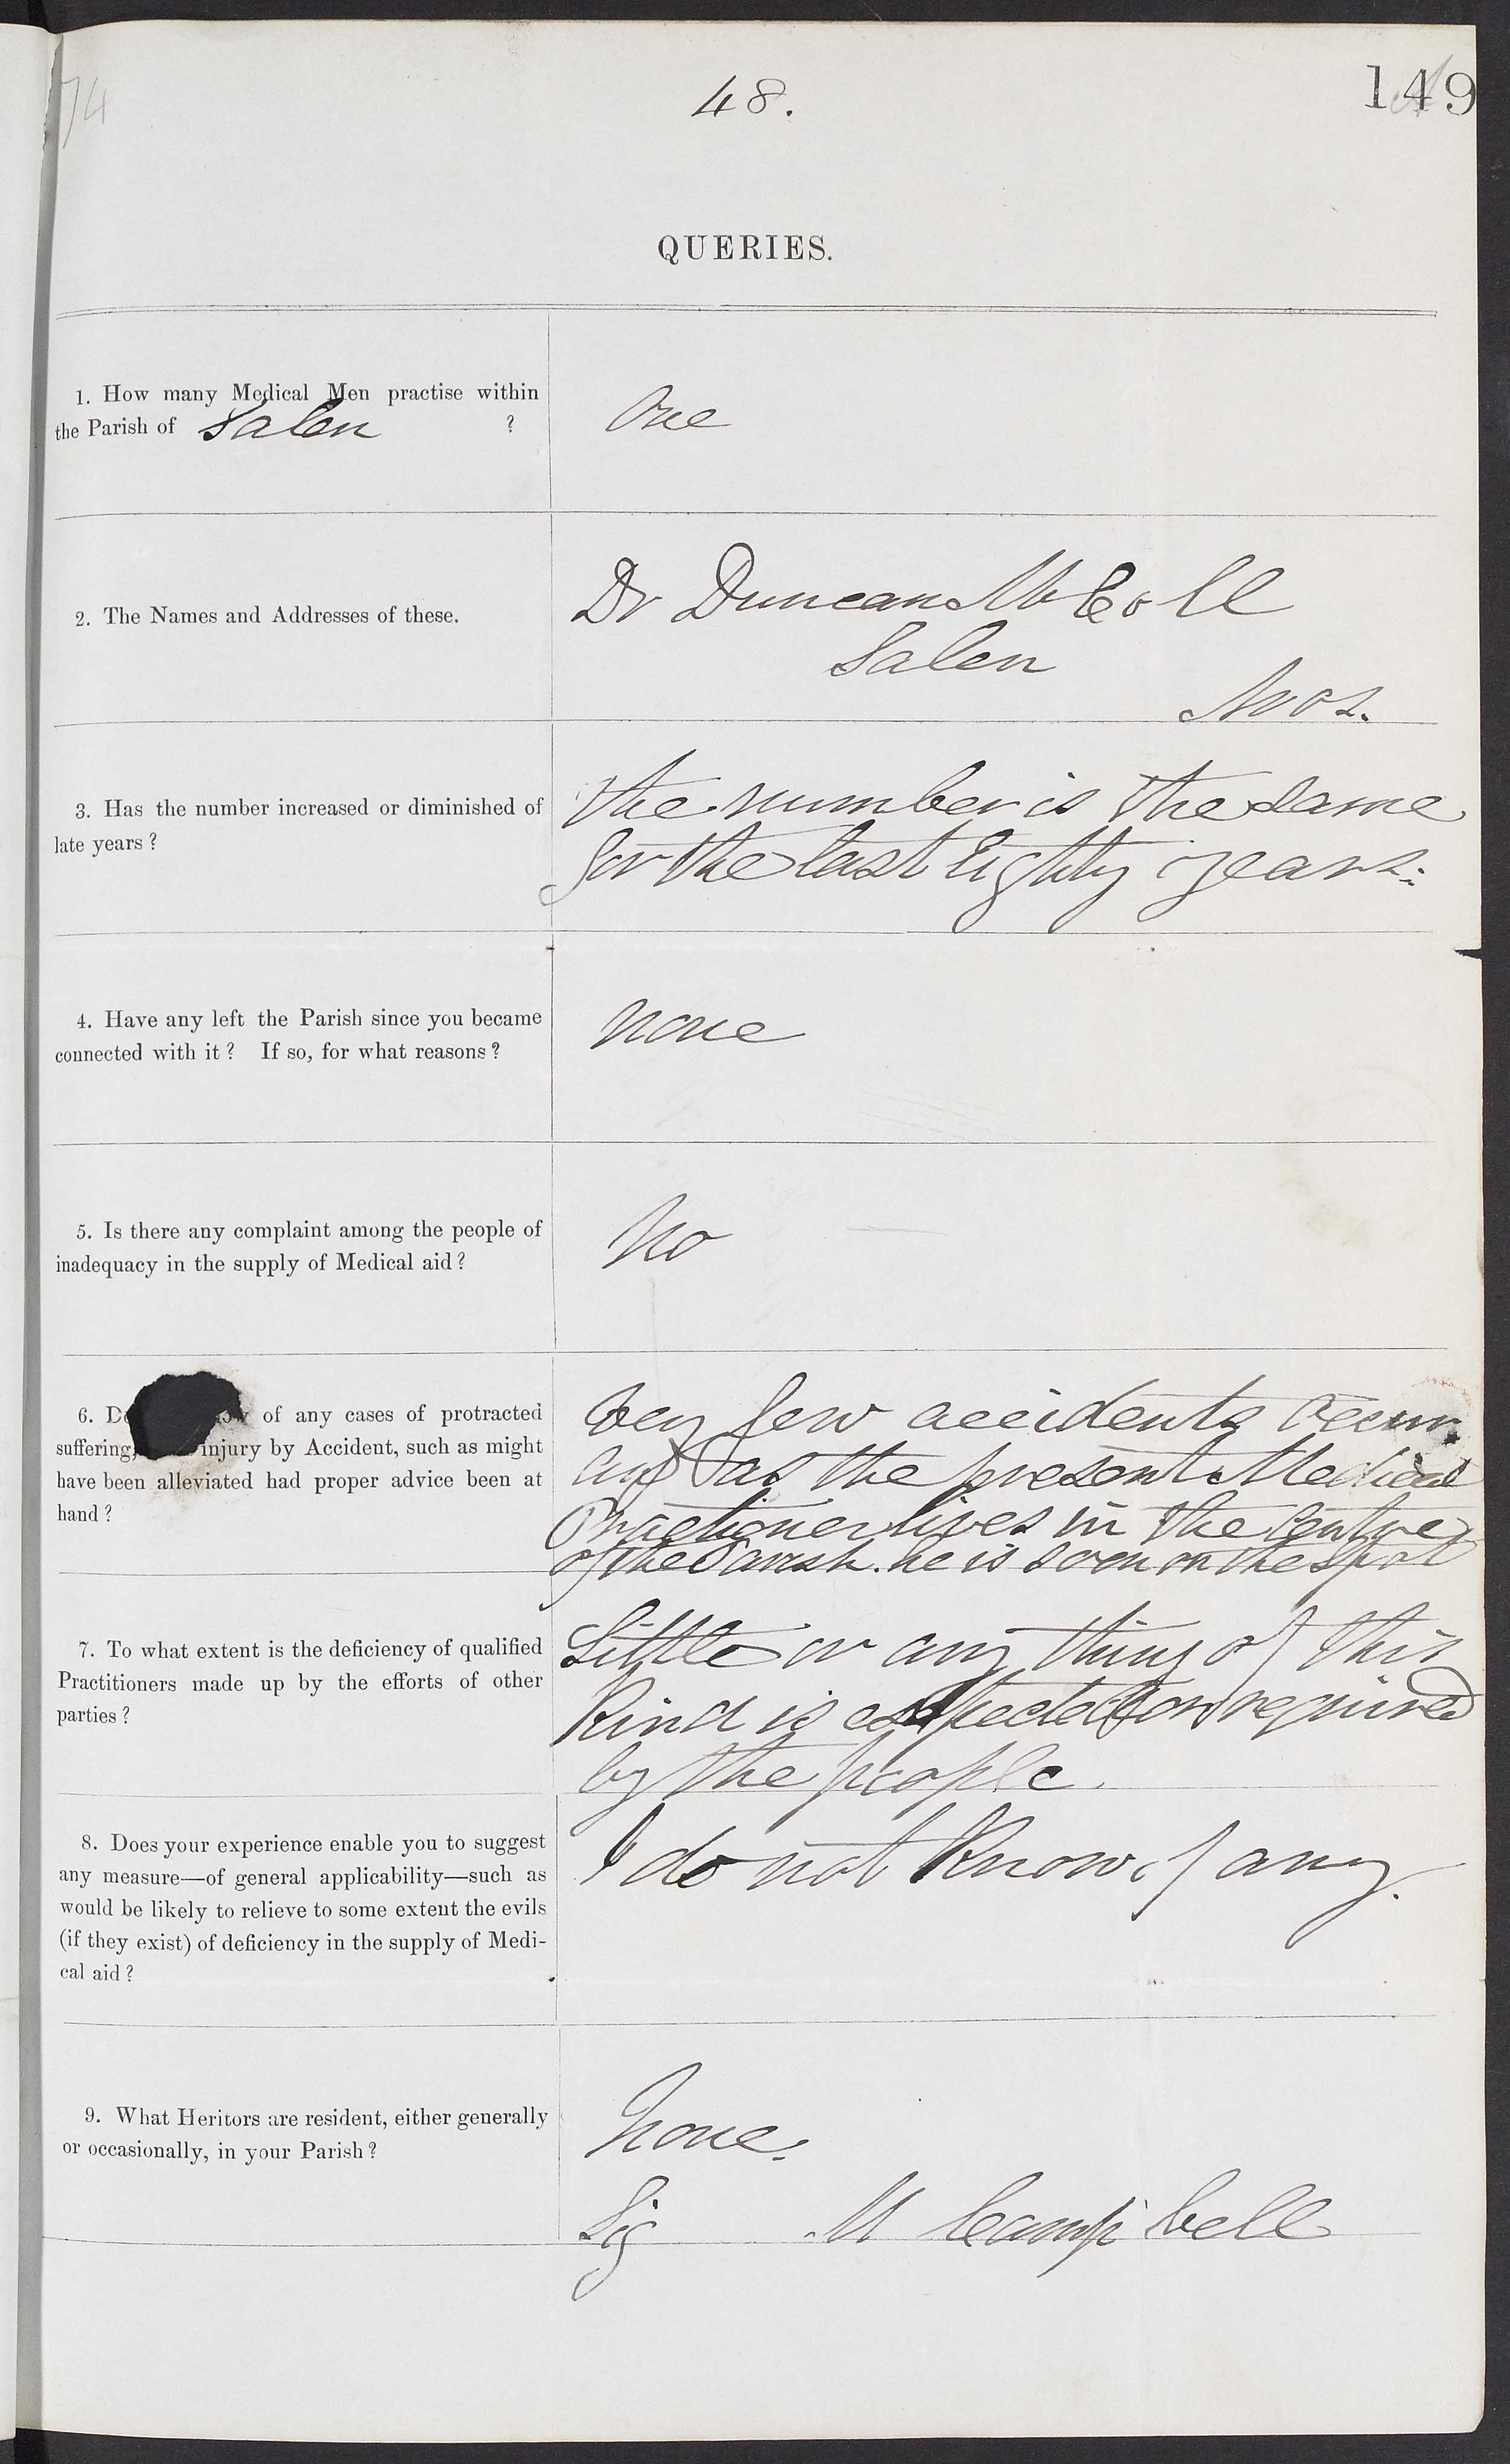 74
48.
149
QUERIES.
1. How many Medical Men practise within
the Parish of Salen ?
One
2. The Names and Addresses of these.
Dr Duncan McColl
Salen
3. Has the number increased or diminished of
late years?
The number is the same
for the last Eighty years.
4. Have any left the Parish since you became
connected with it? If so, for what reasons?
None
5. Is there any complaint among the people of
inadequacy in the supply of Medical aid?
No
6. of any cases of protracted
suffering, injury by Accident, such as might
have been alleviated had proper advice been at
hand?
Very few accidents occur.
and as the present Medical
Practioner lives in the Centre
of the Parish. he is soon on the spot
7. To what extent is the deficiency of qualified
Practitioners made up by the efforts of other
parties?
Little or any thing of this
Kind is expected or required
by the people.
8. Does your experience enable you to suggest
any measure—of general applicability—such as
would be likely to relieve to some extent the evils
(if they exist) of deficiency in the supply of Medi-
cal aid?
I do not Know of any.
9. What Heritors are resident, either generally
or occasionally, in your Parish?
None.
Sig M Campbell